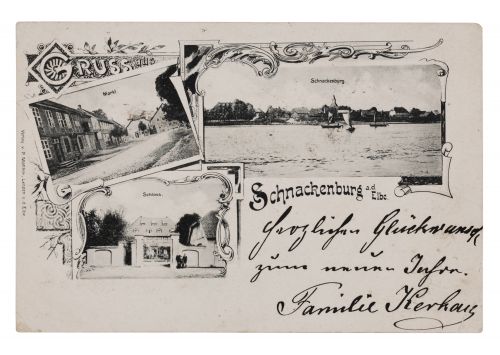 GRUSS aus
Markt
Schnackenburg.
Schloss.
Schnackenburg a.d. Elbe.
Herzlichen Glückwunsch
zum neuen Jahre.
Familie
Verlag v. P.